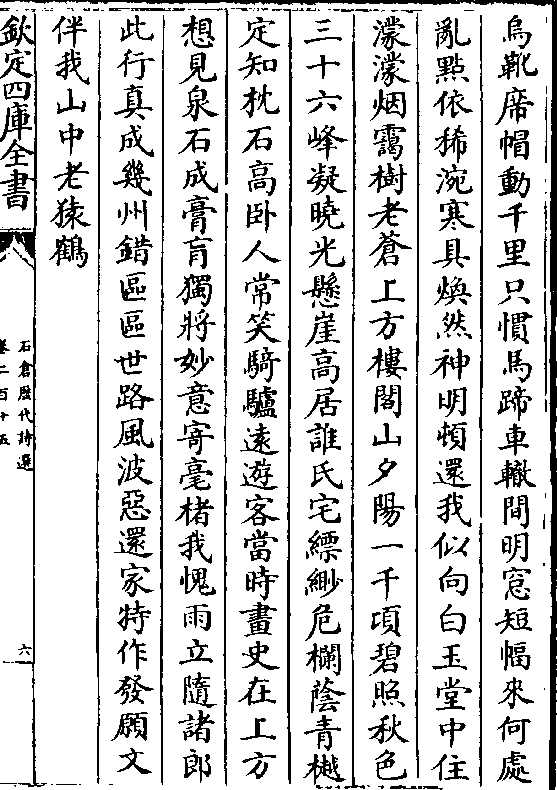 烏靴席帽動千里只慣馬蹄車轍間明窓短幅來何處
亂點依稀涴寒具煥然神明頓還我似向白玉堂中住
濛濛烟靄樹老蒼上方樓閣山夕陽一千頃碧照秋色
三十六峰凝曉光懸崖高居誰氏宅縹緲危欄蔭青樾
定知枕石高卧人常笑騎驢遠遊客當時畫史在上方
想見泉石成膏肓獨將妙意寄毫楮我愧雨立隨諸郎
此行真成幾州錯區區世路風波惡還家特作發願文
伴我山中老猿鶴
欽定四庫全書
石倉歷代詩選
卷二百十五
六